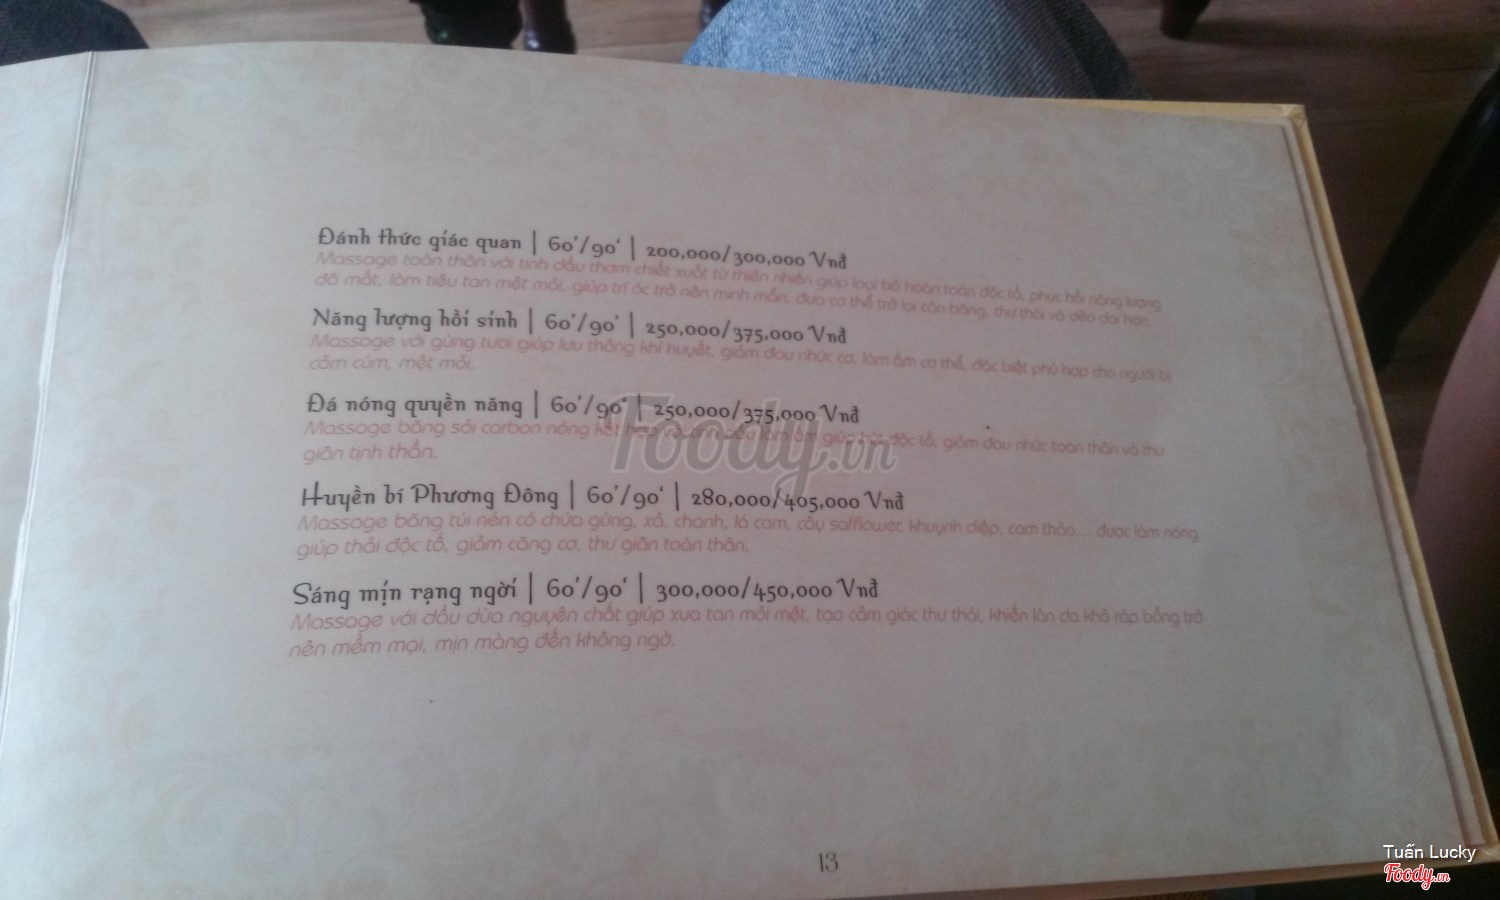 Đánh thức giác quan | 60'/90' | 200,000/300,000 Vnđ
Massage toàn thân với tinh dầu thơm chiết xuất từ thiên nhiên giúp loại bỏ hoàn toàn độc tố, phục hồi năng lượng
đã mất, làm tiêu tan mệt mỏi, giúp trí óc trở nên minh mẫn, đưa cơ thể trở lại cân bằng, thư thái và dẻo dai hơn.
Năng lượng hồi sinh | 60'/90' | 250,000/375,000 Vnđ
Massage với gừng tươi giúp lưu thông khí huyết, giảm đau nhức cơ, làm ấm cơ thể, đặc biệt phù hợp cho người bị
cảm cúm, mệt mỏi.
Đá nóng quyền năng | 60'/90' | 250,000/375,000 Vnđ
Massage bằng sỏi carbon nóng kết hợp với tinh dầu làm ấm giúp hút độc tố, giảm đau nhức toàn thân và thư
giãn tinh thần.
Huyền bí Phương Đông | 60'/90' | 280,000/405,000 Vnđ
Massage bằng túi nén có chứa gừng, xả, chanh, lá cam, cây safflower, khuynh diệp, cam thảo... được làm nóng
giúp thải độc tố, giảm căng cơ, thư giãn toàn thân.
Sáng mịn rạng ngời | 60'/90' | 300,000/450,000 Vnđ
Massage với dầu dừa nguyên chất giúp xua tan mỏi mệt, tạo cảm giác thư thái, khiến làn da khô ráp bỗng trở
nên mềm mại, mịn màng đến không ngờ.
Foody.vn
13
Tuấn Lucky
Foody.vn